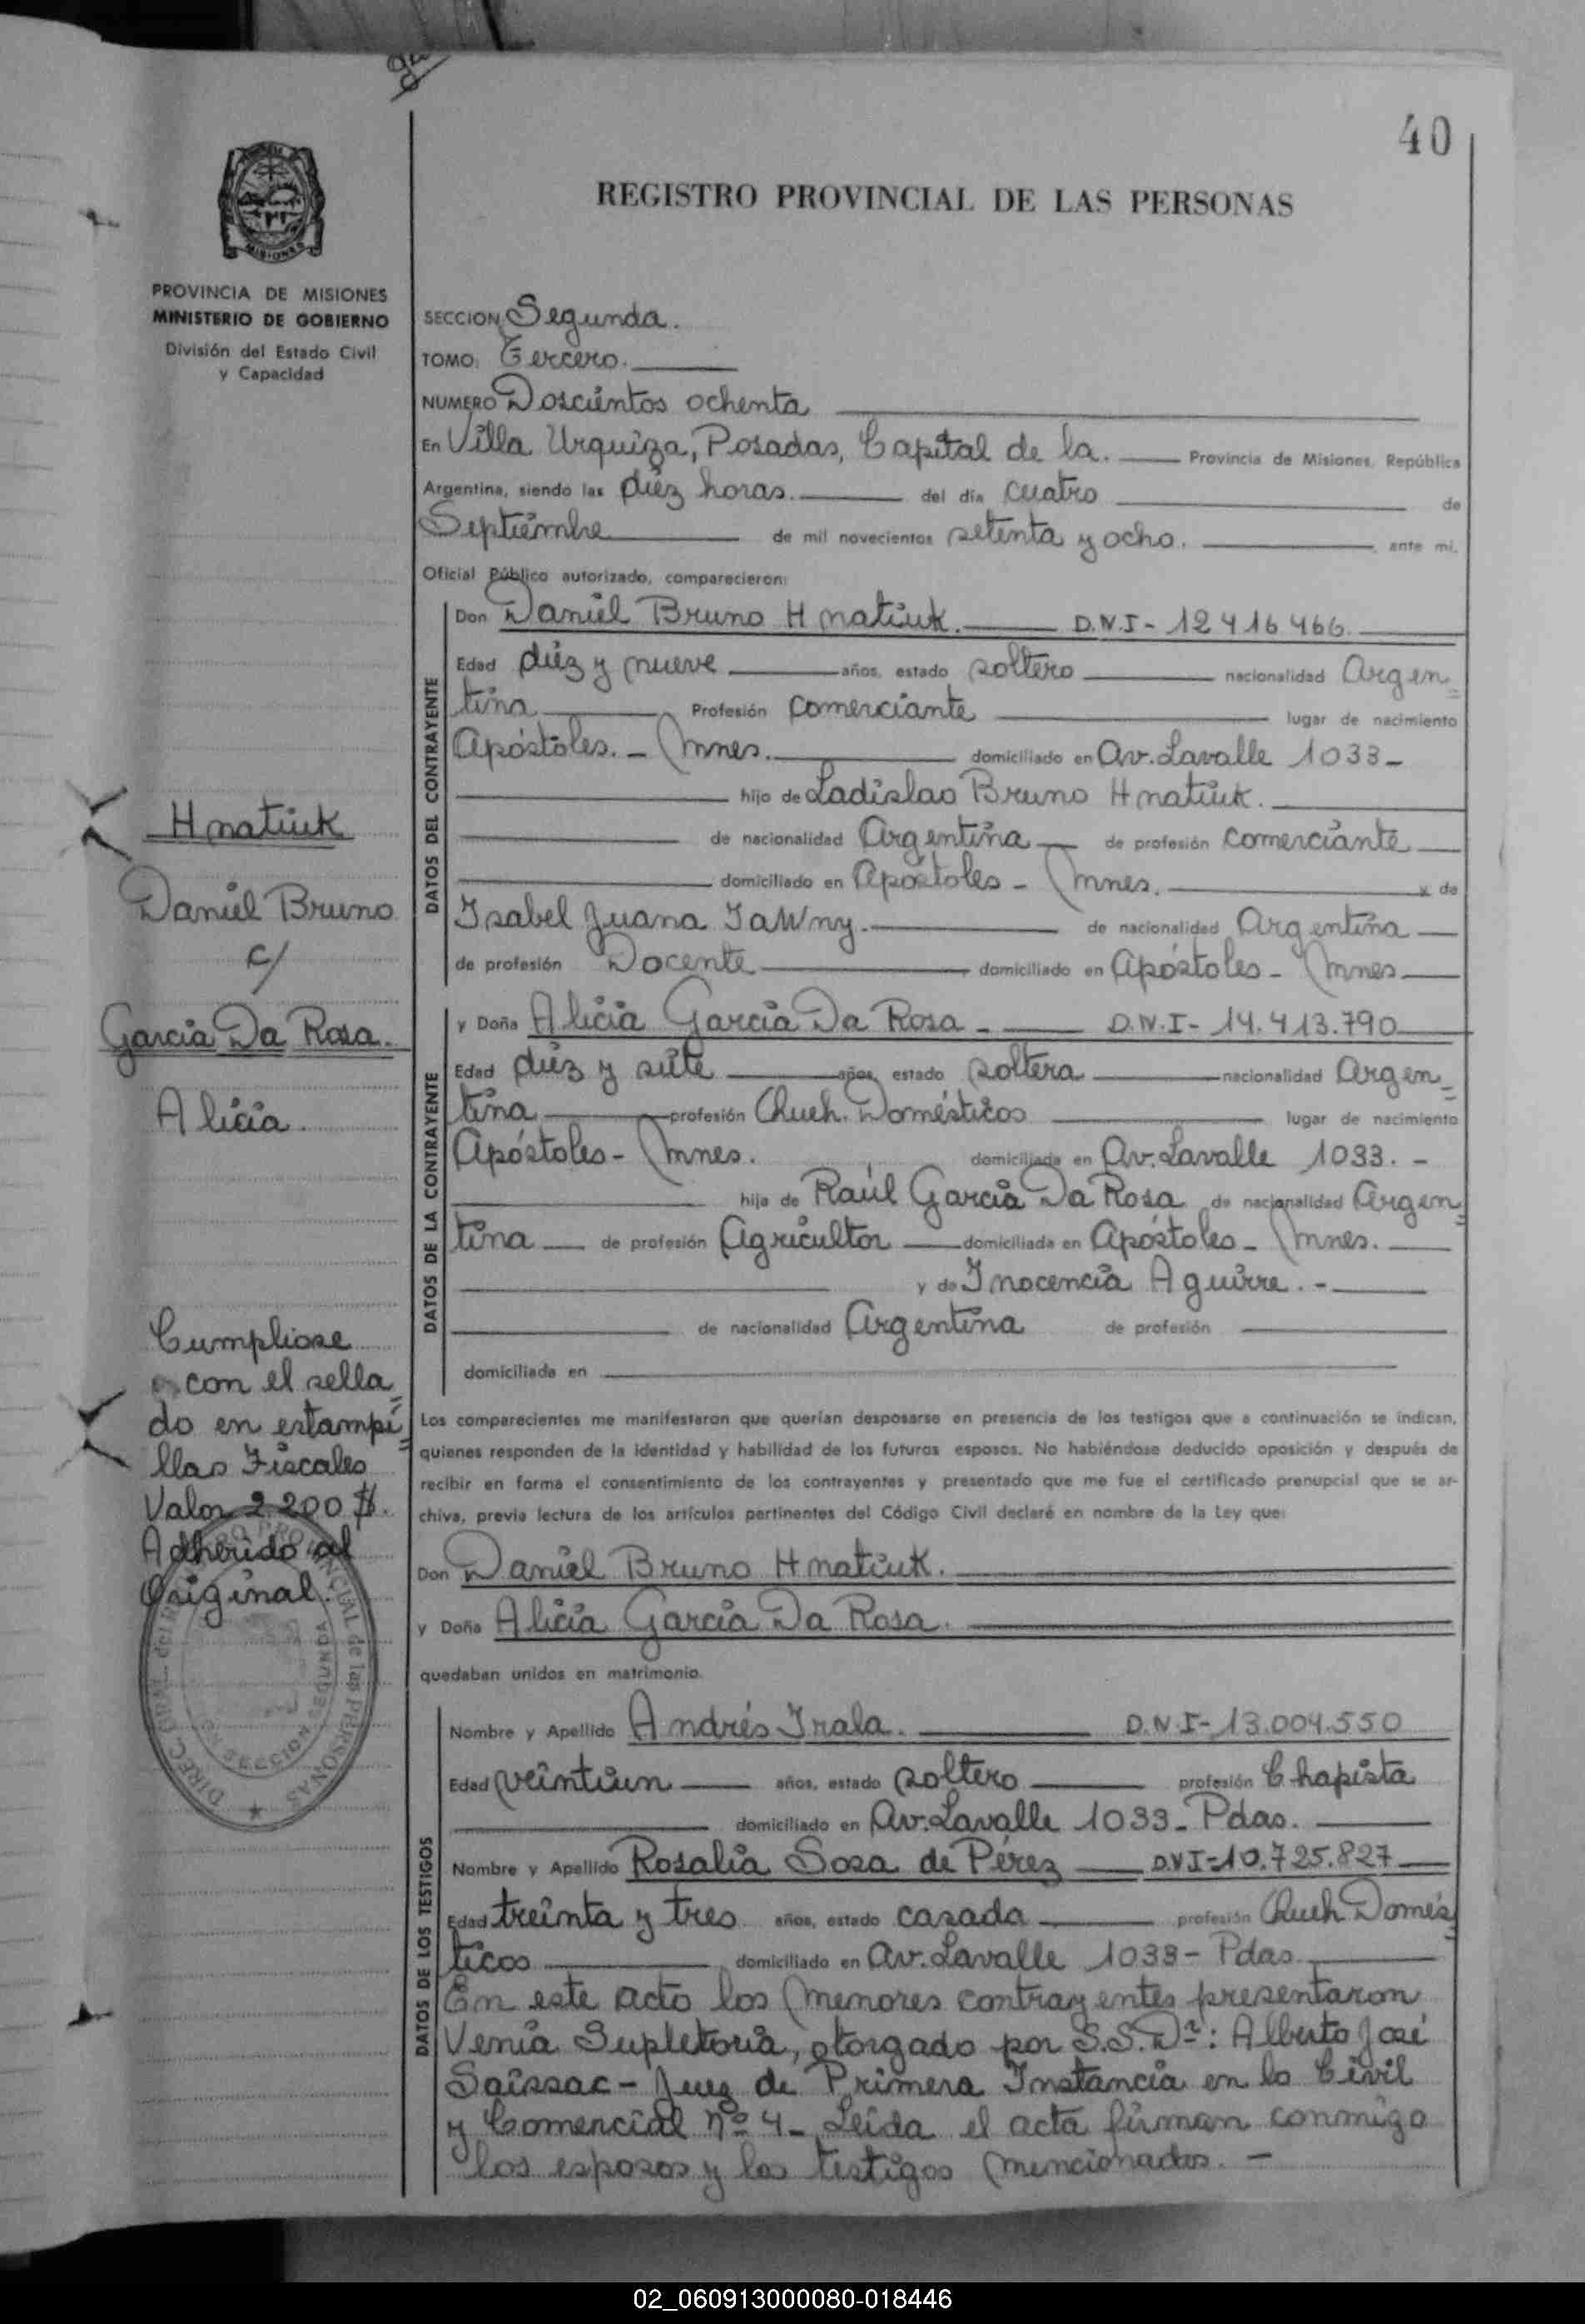 40
REGISTRO PROVINCIAL DE LAS PERSONAS
MISIONES
PROVINCIA DE MISIONES
MINISTERIO DE GOBIERNO
División del Estado Civil
y Capacidad
SECCION Segunda.
TOMO: Tercero.
NUMERO Doscientos ochenta
En Villa Urquiza, Posadas, Capital de la. Provincia de Misiones, República
Argentina, siendo las diez horas. del día cuatro de
Septiembre de mil novecientos setenta y ocho. ante mí,
Oficial Público autorizado, comparecieron:
DATOS DEL CONTRAYENTE
Don Daniel Bruno Hnatiuk. D.N.I- 12416466.
Edad diez y nueve años, estado soltero nacionalidad Argen=
tina Profesión comerciante lugar de nacimiento
Apóstoles. - Mnes. domiciliado en Av. Lavalle 1033-
hijo de Ladislao Bruno Hnatiuk.
de nacionalidad Argentina de profesión comerciante
domiciliado en Apóstoles - Mnes. y de
Isabel Juana JaWny. de nacionalidad Argentina
de profesión Docente domiciliado en Apóstoles - Mnes
DATOS DE LA CONTRAYENTE
y Doña Alicia García Da Rosa - D.N.I- 14.413.790
Edad diez y siete años, estado soltera nacionalidad Argen=
tina profesión Queh. Domésticos lugar de nacimiento
Apóstoles- Mnes. domiciliada en Av. Lavalle 1033. -
hija de Raúl García Da Rosa de nacionalidad Argen=
tina de profesión Agricultor domiciliada en Apóstoles - Mnes.
y de Inocencia Aguirre. -
de nacionalidad Argentina de profesión
domiciliada en
Los comparecientes me manifestaron que querían desposarse en presencia de los testigos que a continuación se indican,
quienes responden de la identidad y habilidad de los futuros esposos. No habiéndose deducido oposición y después de
recibir en forma el consentimiento de los contrayentes y presentado que me fue el certificado prenupcial que se ar-
chiva, previa lectura de los artículos pertinentes del Código Civil declaré en nombre de la Ley que:
Don Daniel Bruno Hnatiuk.
y Doña Alicia García Da Rosa.
quedaban unidos en matrimonio.
DATOS DE LOS TESTIGOS
Nombre y Apellido Andrés Irala. D.N.I- 13.004.550
Edad veintiun años, estado soltero profesión Chapista
domiciliado en Av. Lavalle 1033- Pdas.
Nombre y Apellido Rosalía Sosa de Pérez D.N.I-10.725.827
Edad treinta y tres años, estado casada profesión Queh Domés=
ticos domiciliado en Av. Lavalle 1033- Pdas.
En este acto los menores contrayentes presentaron
Venia Supletoria, otorgado por S.S. Dr: Alberto José
Saissac- Juez de Primera Instancia en lo Civil
y Comercial nº 4- Leída el acta firman conmigo
los esposos y los testigos mencionados. -
Hnatiuk
Daniel Bruno
c/
García Da Rosa.
Alicia.
Cumpliose
con el sella=
do en estampi=
llas Fiscales
Valor 2200 $.
Adherido al
Original.
DIREC. GRAL. del REGISTRO PROVINCIAL de las PERSONAS
SECCION SEGUNDA
02_060913000080-018446